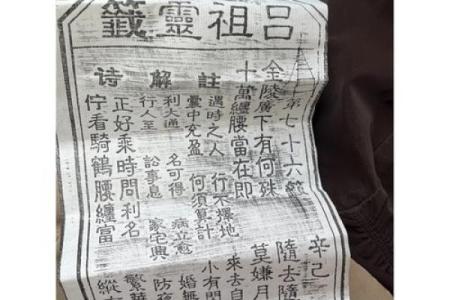 吕祖靈籤
第七十六籤
金陵廣下有何殊
十萬纏腰當在即
註解诗
遇時之人 行不擇地
囊中充盈 何須計
利大通 名可得 病立愈
行人至 訟事息 家宅興
正好乘時問利名
佇看騎鶴腰纏富
辛己
隨去隨
莫嫌月
來去自
小有
婚
防
繁華
縱